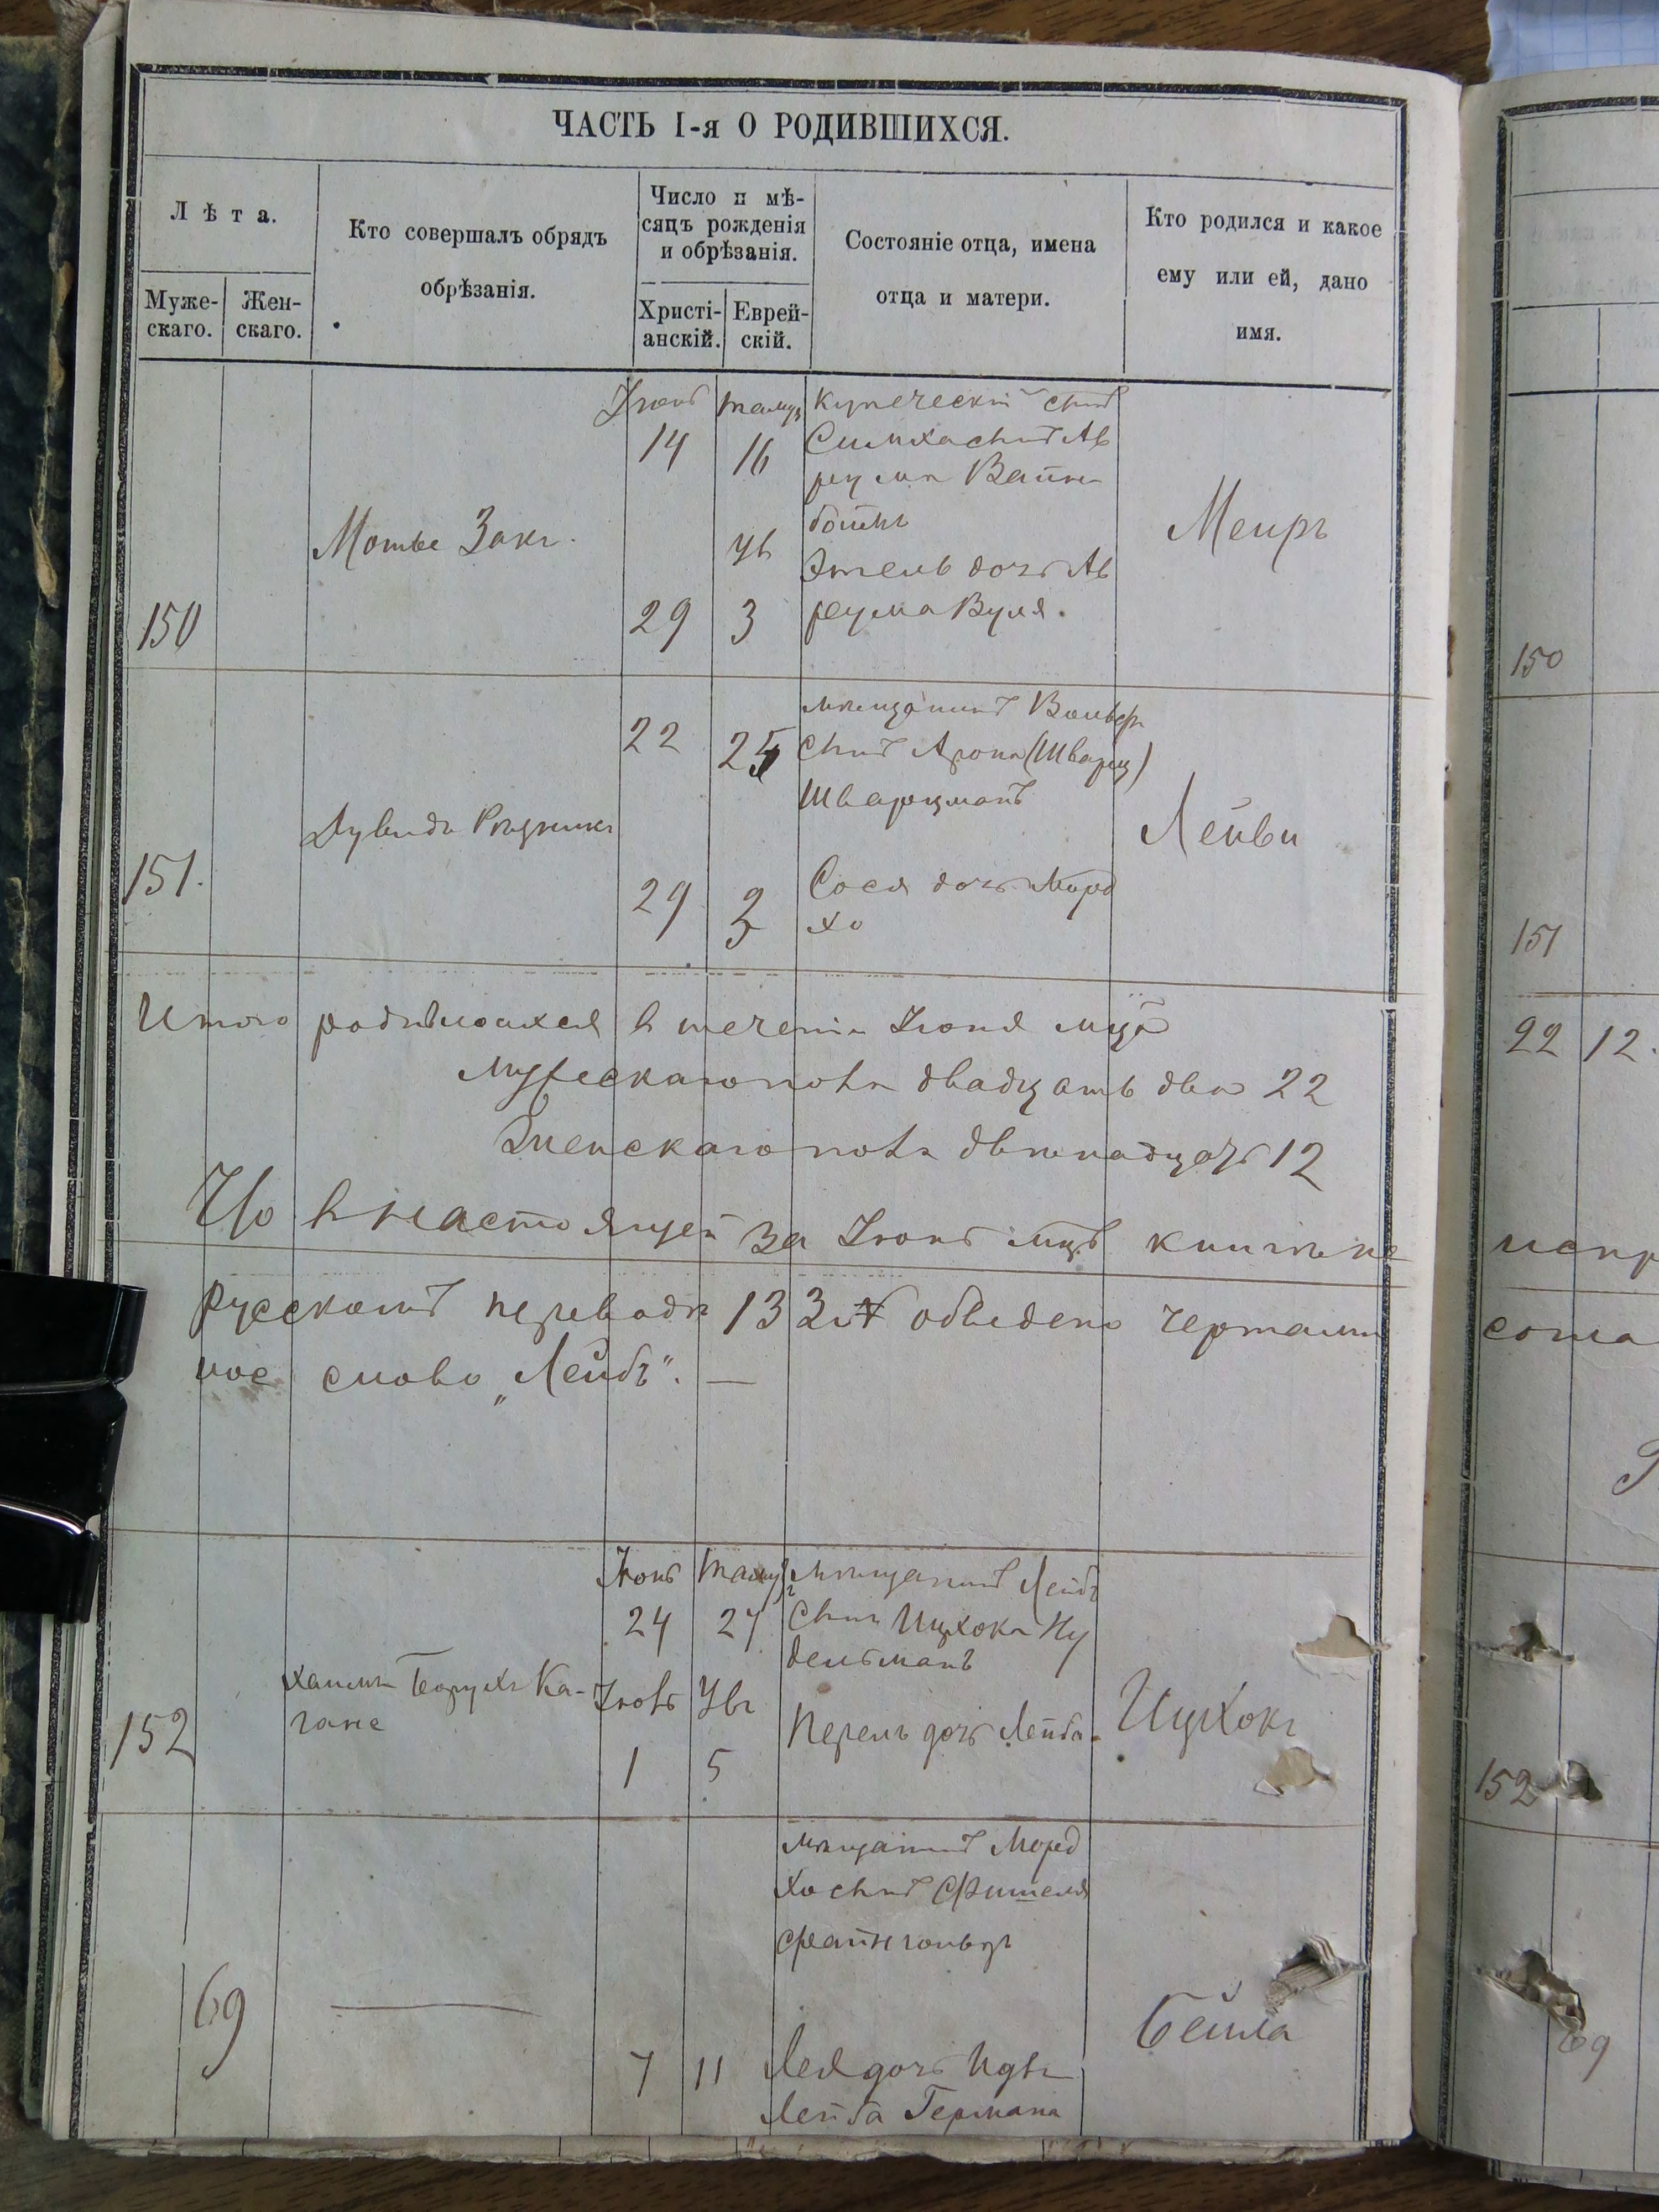 ЧАСТЬ I-я О РОДИВШИХСЯ.
Лѣта.
Муже-
скаго.
Жен-
скаго.
Кто совершалъ обрядъ
обрѣзанія.
Число и мѣ-
сяцъ рожденія
и обрѣзанія.
Христі-
анскій.
Еврей-
скій.
Состояніе отца, имена
отца и матери.
Кто родился и какое
ему или ей, дано
имя.
150
Мотье Закъ.
Іюнь
14
29
тамуз
16
3
купеческій сынъ
Симха сынъ Ав
рума Вайн
Этель дочь Ав
реума Вуля.
Меиръ
151.
Дувидъ Рѣзникъ
22
29
25
3
мѣщанинъ Вольфъ
сынъ Арона (Шварц)
Шварцманъ
Сося дочь Морд
хо
Лейви
Итого родившихся в теченіи Іюня мца
Мужескаго пола двадцать два 22
Женскаго пола двенадцать 12
Что в настоящей за Іюнь мцъ книгѣ не
русскомъ переводѣ 133 № обведено чертами
ное слово „Лейбъ". —
152
Хаимъ Борухъ Ка-
гане
Іюнь
24
Іюль
1
тамуз
27
5
мѣщанинъ Лейбъ
сынъ Ицхока Ну
дельманъ
Перель дочь Лейба.
Ицхокъ
69
7
11
мѣщанинъ Морд
хо сынъ Фишеля
Файнгольдъ
Лея дочь
Лейба Германа
Бейла
150
151
22 12.
испр
согла
152
69